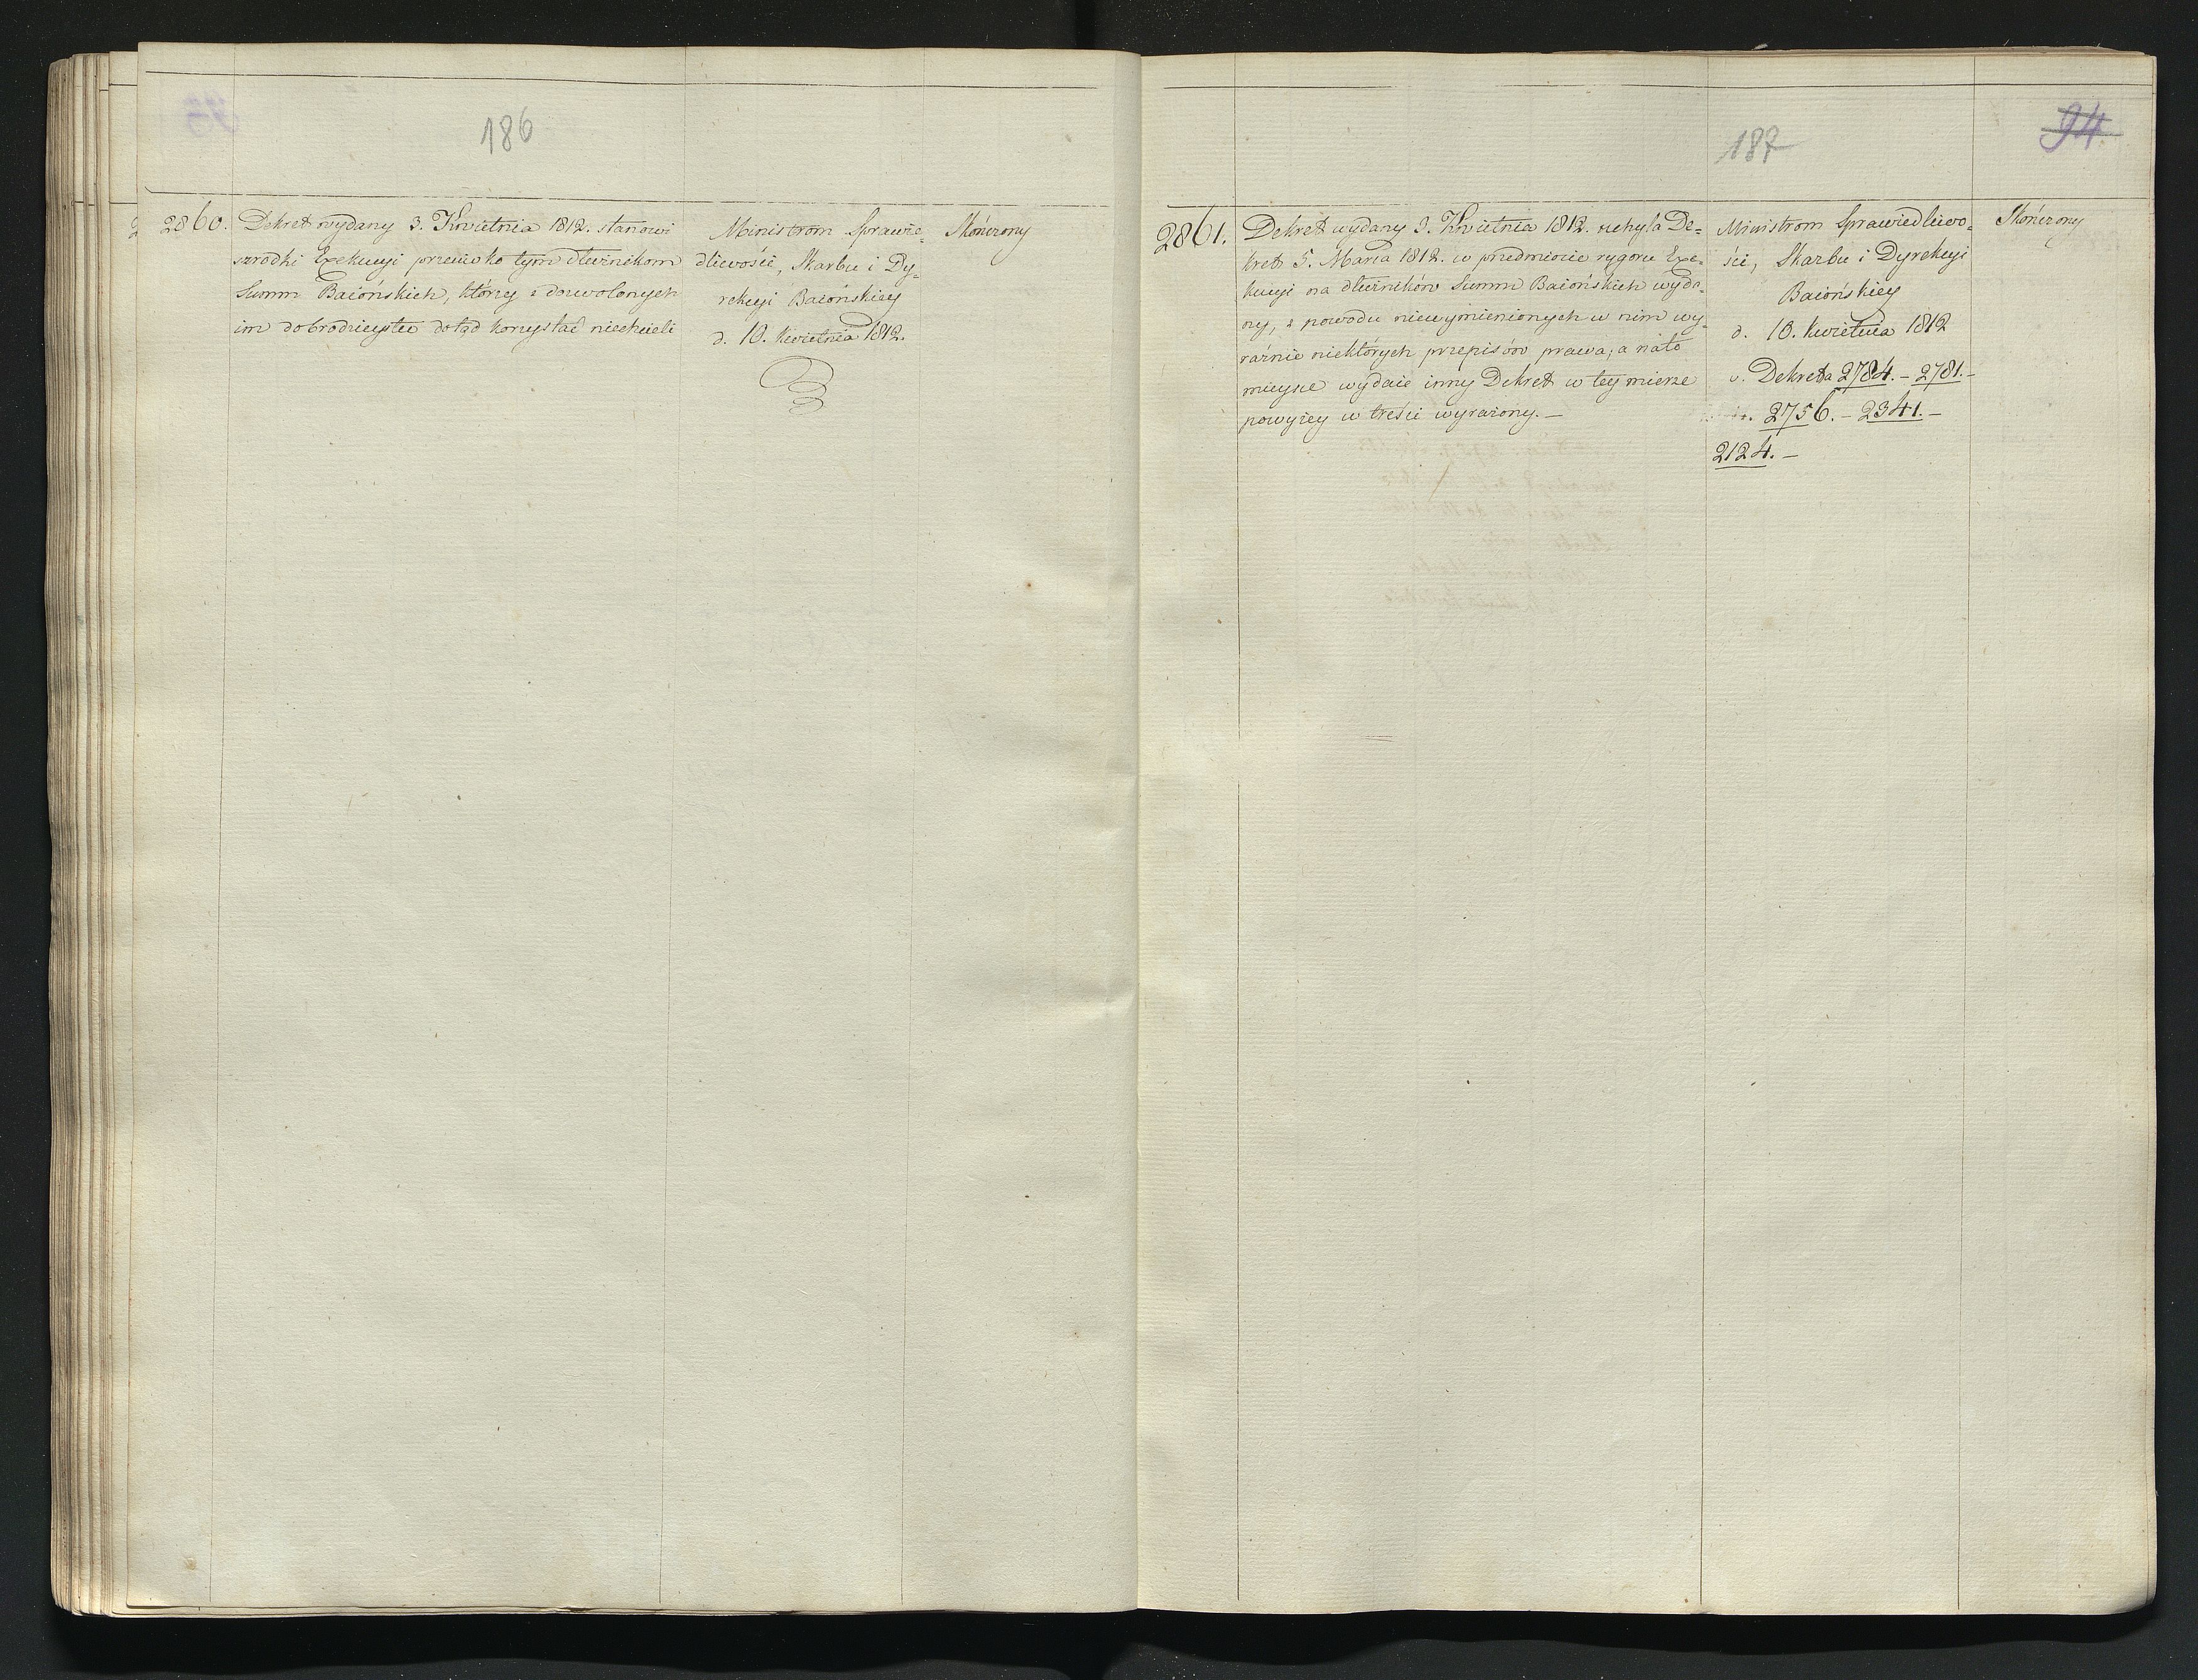 186
2860. Dekret wydany 3. Kwietnia 1812. stanowi
szrodki Exekucyi przeciwko tym dłużnikom
Summ Baiońskich, którzy z dozwolonych
im dobrodzieystw dotąd korzystać niechcieli
Ministrom Sprawie-
dliwości, Skarbu i Dy-
rekcyi Baiońskiey
d. 10. Kwietnia 1812.
Skończony
187
94
2861. Dekret wydany 3. Kwietnia 1812. uchyla De-
kret 5. Marca 1812. w przedmiocie rygoru Exe-
kucyi na dłużników Summ Baiońskich wyda-
ny, z powodu niewymienionych w nim wy-
raźnie niektórych przepisów prawa; a na to
mieysce wydaie inny Dekret w tey mierze
powyżey w treści wyrażony. –
Ministrom Sprawiedliwo-
ści, Skarbu i Dyrekcyi
Baiońskiey
d. 10. Kwietnia 1812
v. Dekreta 2784. – 2781. –
2756. – 2341. –
2124. –
Skończony